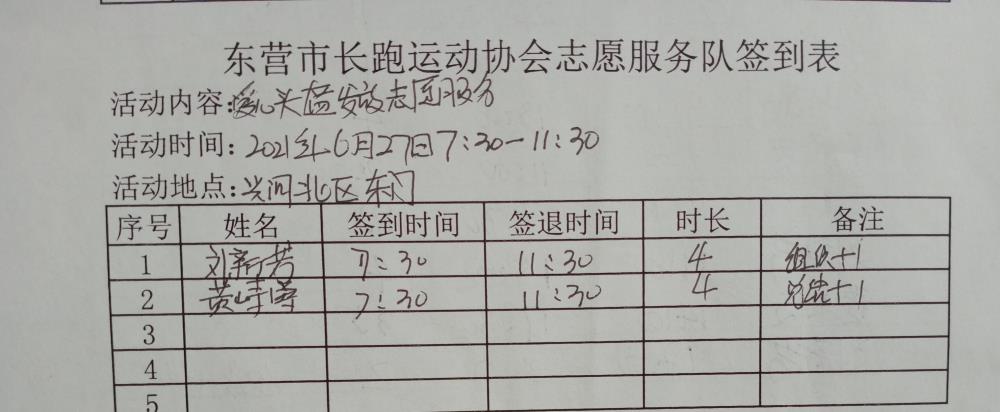 东营市长跑运动协会志愿服务队签到表
活动内容:爱心头盔发放志愿服务
活动时间:2021年6月27日7:30-11:30
活动地点:兴河北区东门
序号 姓名 签到时间 签退时间 时长 备注
1 刘新芳 7:30 11:30 4 组织+1
2 黄 7:30 11:30 4 总结+1
3
4
5